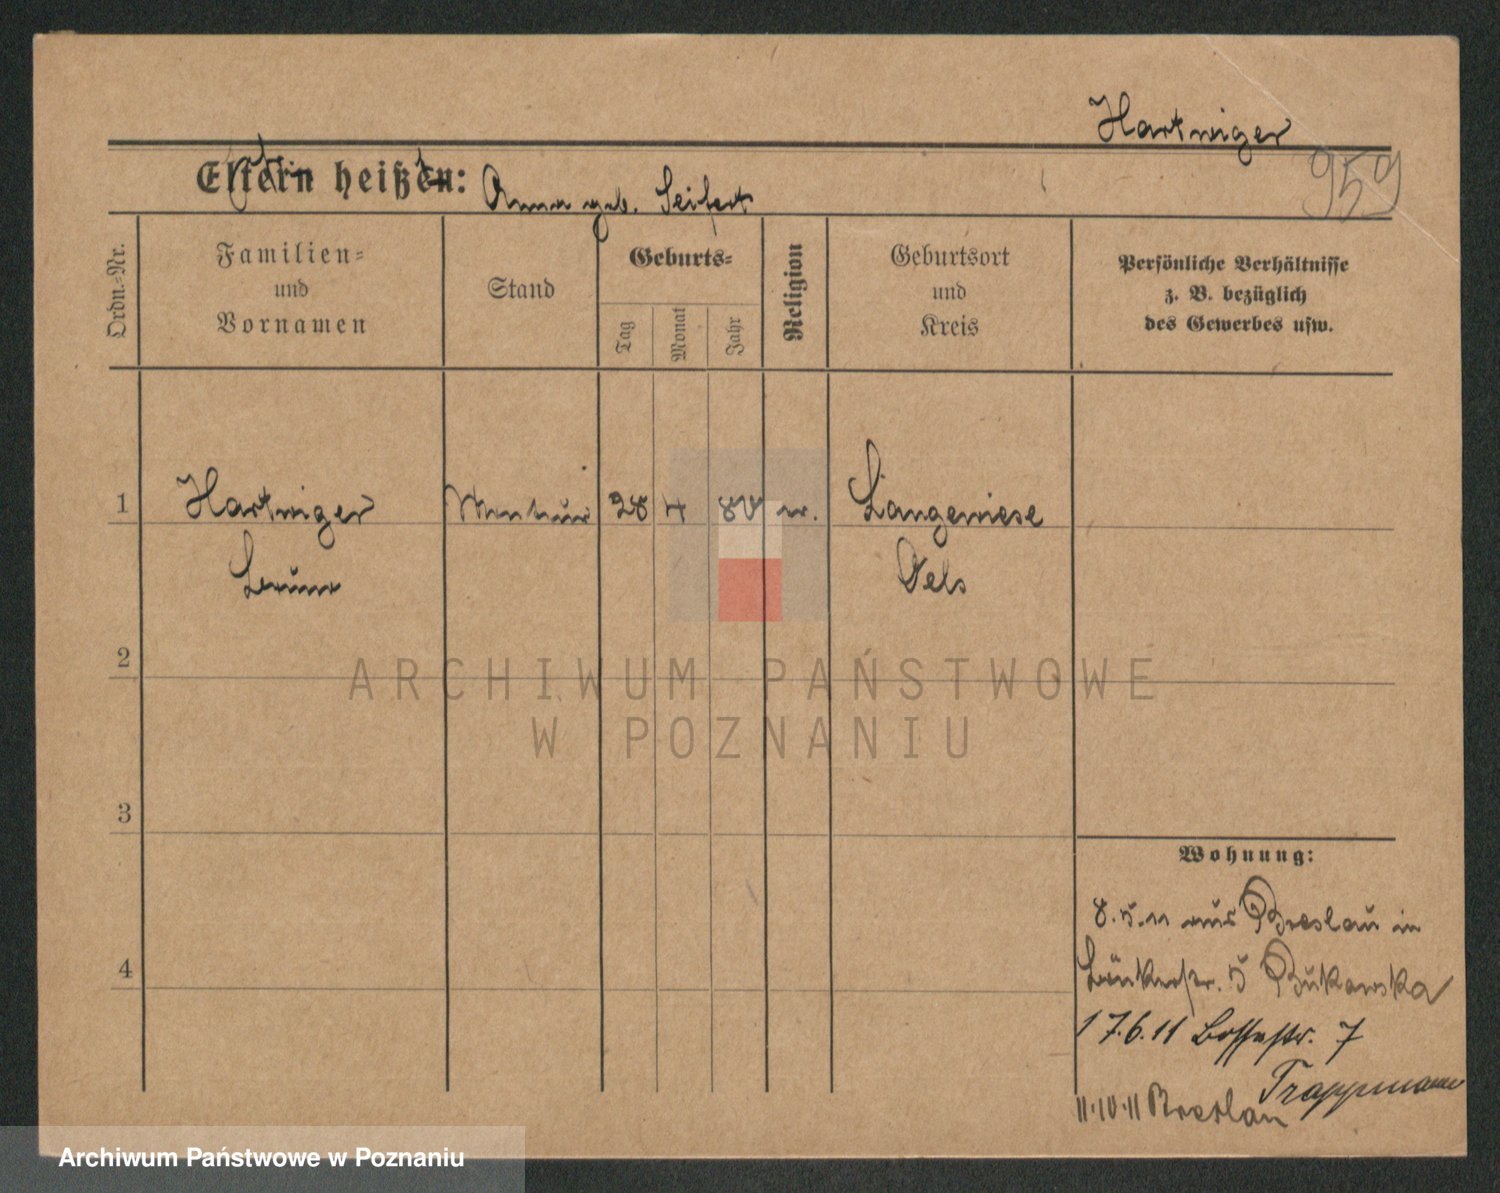 Hartwiger
959
Eltern heißen: Anna geb. Seifert
Ordn.-Nr.
Familien-
und
Vornamen
Stand
Geburts-
Tag
Monat
Jahr
Religion
Geburtsort
und
Kreis
Persönliche Verhältnisse
z. B. bezüglich
des Gewerbes usw.
1 Hartwiger 28 4 80 Langewiese
Oels
2
ARCHIWUM PAŃSTWOWE
W POZNANIU
3
Wohnung:
8.5.11 aus Breslau in
5 Bukowska
4
17.6.11 7
Trappmann
11.10.11 Breslau
Archiwum Państwowe w Poznaniu